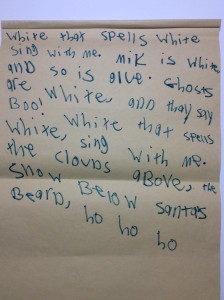 White that spells white
sing with me. milk is white
and so is glue. Ghosts
are white, and they say
Boo! white that spells
white, sing with me.
the clouds above, the
snow Below santas
Beard, ho ho ho